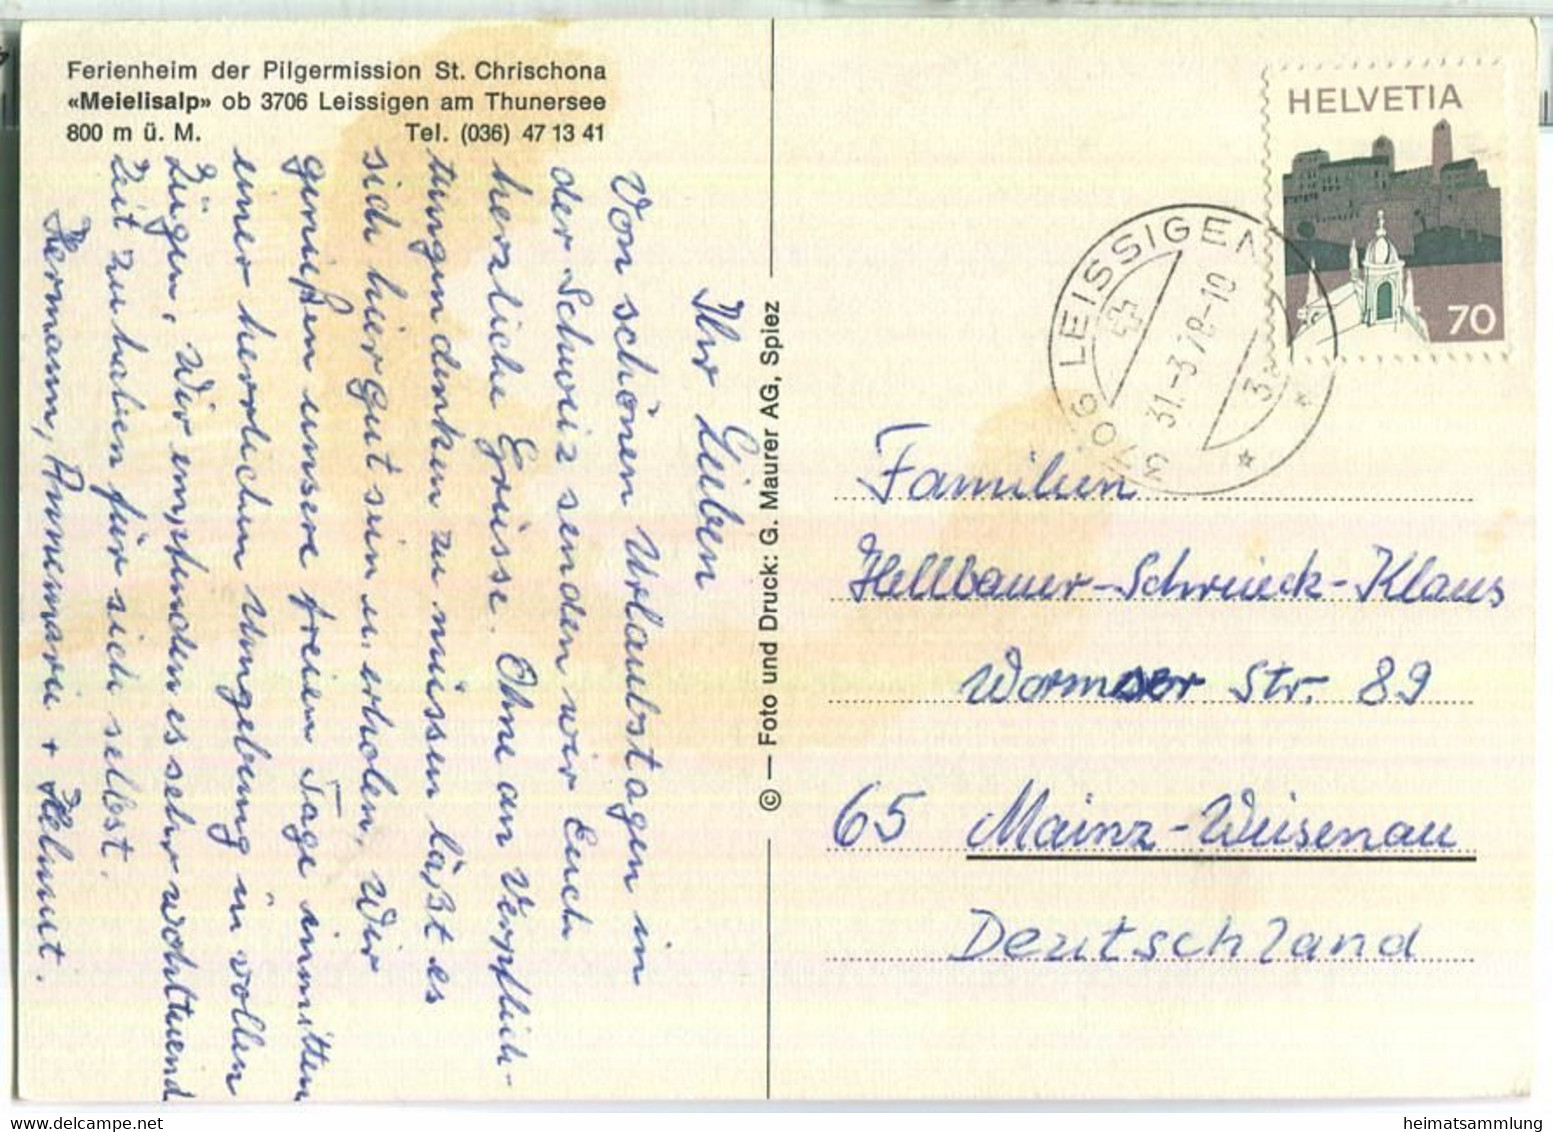 Ferienheim der Pilgermission St. Chrischona
«Meielisalp» ob 3706 Leissigen am Thunersee
800 m ü. M. Tel. (036) 47 13 41
Ihr Lieben
Von schönen Urlaubstagen in
der Schweiz senden wir Euch
herzliche Grüsse. Ohne an Verpflich-
tungen denken zu müssen läßt es
sich hier gut sein u. erholen. Wir
genießen unsere freien Tage inmitten
einer herrlichen Umgebung in vollen
Zügen. Wir empfinden es sehr wohltuend
Zeit zu haben für sich selbst.
Hermann, Annemarie + Helmut.
© — Foto und Druck: G. Maurer AG, Spiez
HELVETIA
70
3706 LEISSIGEN
31.-3.78-10
Familien
Hellbauer-Schreieck-Klaus
Wormser Str. 89
65 Mainz-Weisenau
Deutschland
heimatsammlung
delcampe.net